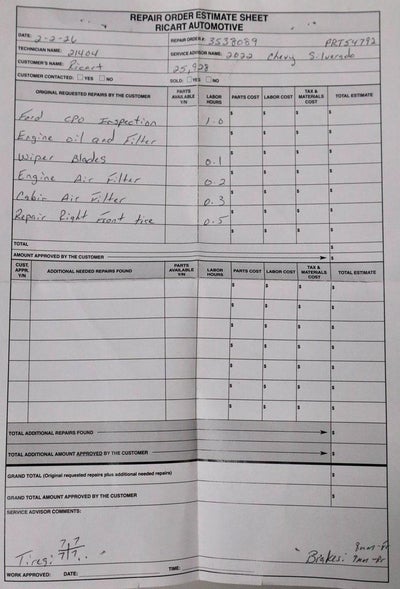 REPAIR ORDER ESTIMATE SHEET
RICART AUTOMOTIVE
DATE: 2-2-26 REPAIR ORDER #: 3538089 PRT54792
TECHNICIAN NAME: 21404 SERVICE ADVISOR NAME: 2022 Chevy Silverado
CUSTOMER'S NAME: Ricart 25,928
CUSTOMER CONTACTED: ☐ YES ☐ NO SOLD: ☐ YES ☐ NO
ORIGINAL REQUESTED REPAIRS BY THE CUSTOMER PARTS AVAILABLE Y/N LABOR HOURS PARTS COST LABOR COST TAX & MATERIALS COST TOTAL ESTIMATE
Ford CPO Inspection 1.0 $ $ $ $
Engine oil and Filter $ $ $ $
Wiper Blades 0.1 $ $ $ $
Engine Air Filter 0.2 $ $ $ $
Cabin Air Filter 0.3 $ $ $ $
Repair Right Front tire 0.5 $ $ $ $
TOTAL $
AMOUNT APPROVED BY THE CUSTOMER $
CUST. APPR. Y/N ADDITIONAL NEEDED REPAIRS FOUND PARTS AVAILABLE Y/N LABOR HOURS PARTS COST LABOR COST TAX & MATERIALS COST TOTAL ESTIMATE
$ $ $ $
$ $ $ $
$ $ $ $
$ $ $ $
$ $ $ $
$ $ $ $
$ $ $ $
TOTAL ADDITIONAL REPAIRS FOUND $
TOTAL ADDITIONAL AMOUNT APPROVED BY THE CUSTOMER $
GRAND TOTAL (Original requested repairs plus additional needed repairs) $
GRAND TOTAL AMOUNT APPROVED BY THE CUSTOMER $
SERVICE ADVISOR COMMENTS:
Tires: 7 7
7 7
Brakes:
WORK APPROVED: DATE: TIME: